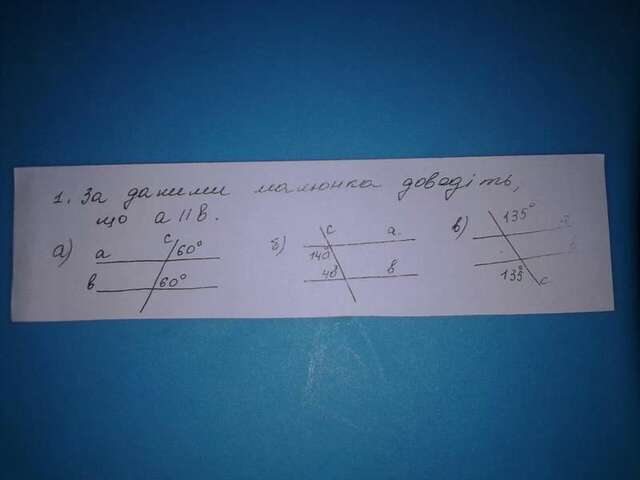 1. За даними малюнка доводіть,
що a || в.
а) a c 60°
в 60°
б) c a
140°
40 в
в) 135° a
в
135° c